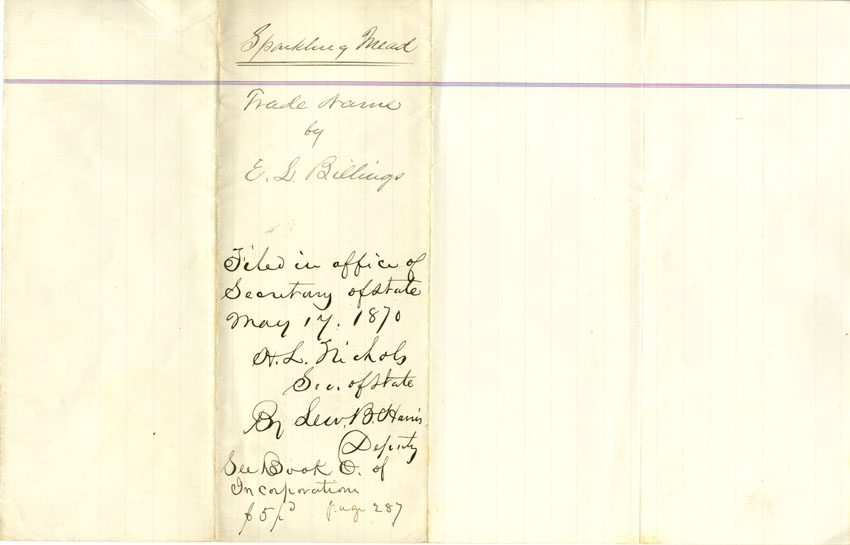 Sparkling Mead
Trade Name
by
E. L. Billings
Filed in office of
Secretary of state
May 17. 1870
H. L. Nichols
Sec. of state
By Lew. B. Harris
Deputy
See Book O. of
Incorporations
$5 pd page 287